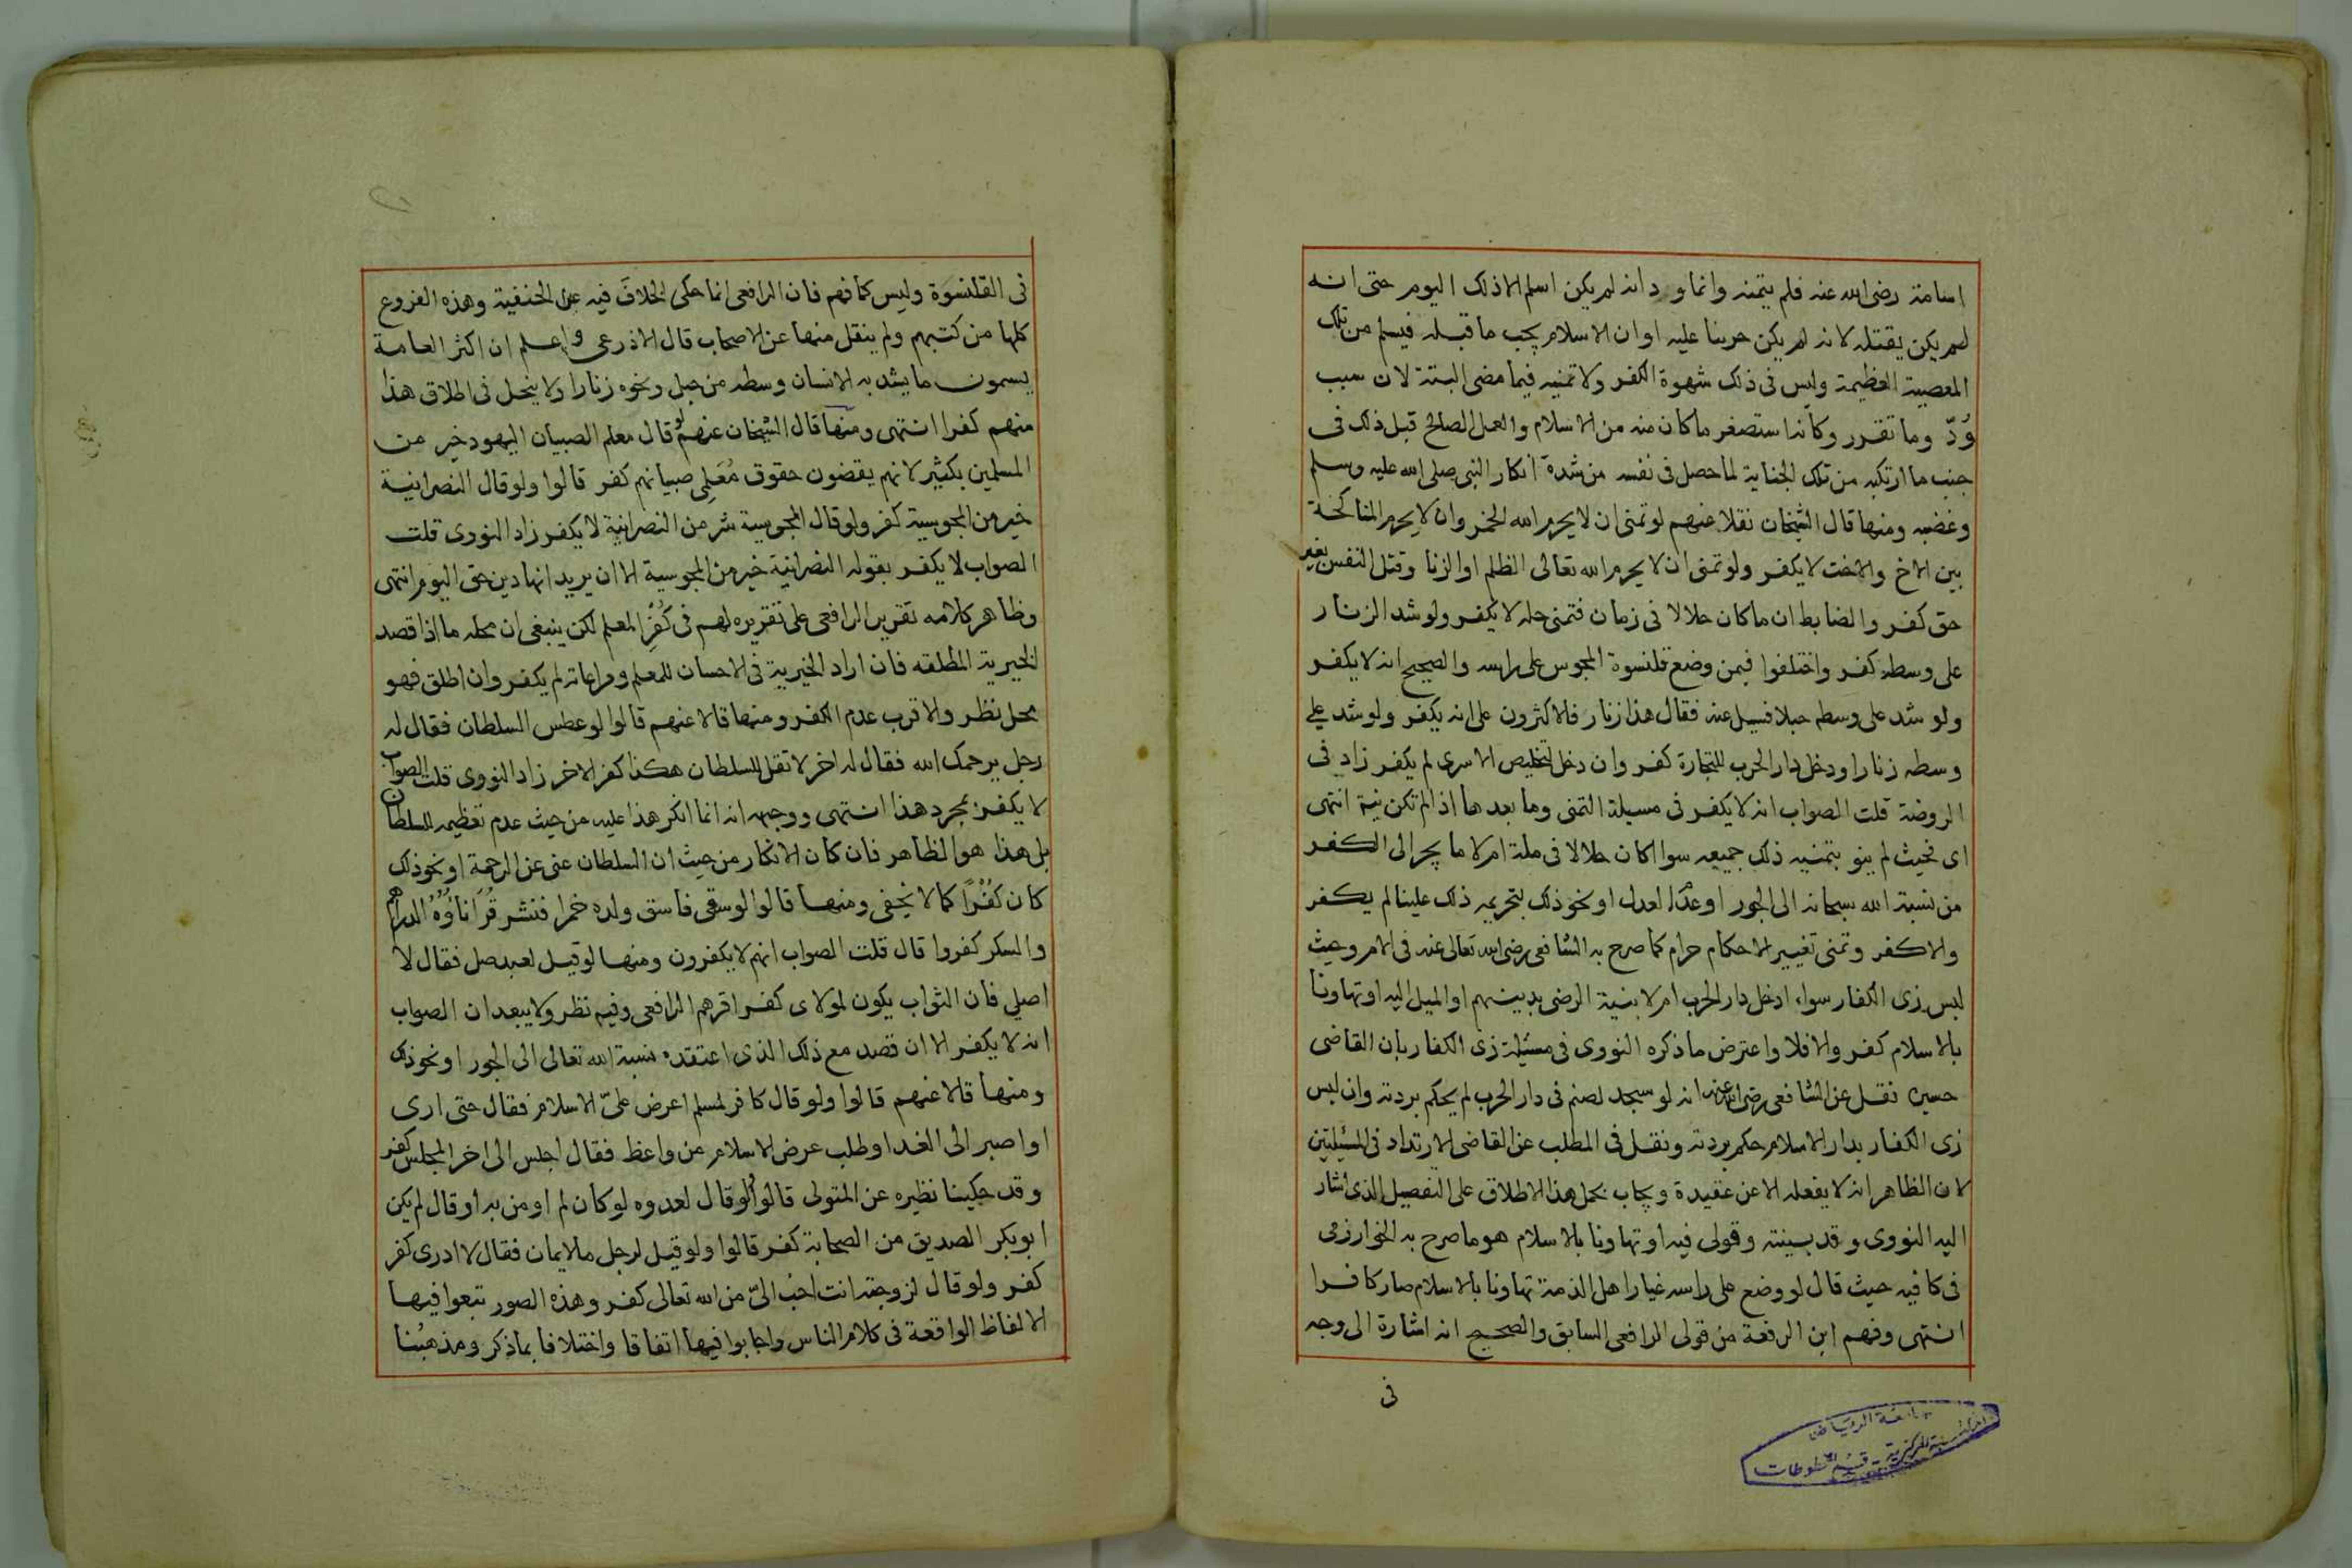 اسامة رضى الله عنه فلم يتمنه وانما ود انه لم يكن اسلم الا ذلك اليوم حتى انه
لم يكن يقتله لانه لم يكن حربنا عليه او ان الاسلام يجب ما قبله فيسلم من تلك
المعصية العظيمة وليس فى ذلك شهوة الكفر ولا تمنيه فيما مضى البتة لان سبب
وُدّ وما تقرر وكأنه استصغر ما كان منه من الاسلام والعمل الصالح قبل ذلك فى
جنب ما ارتكبه من تلك الجناية لما حصل فى نفسه من شدة انكار النبى صلى الله عليه وسلم
وغضبه ومنها قال الشيخان نقلا عنهم لو تمنى ان لا يحرم الله الخمر وان لا يحرم المناكحة
بين الاخ والاخت لا يكفر ولو تمنى ان لا يحرم الله تعالى الظلم او الزنا وقتل النفس بغير
حق كفر والضابط ان ما كان حلالا فى زمان فتمنى حله لا يكفر ولو شد الزنار
على وسطه كفر واختلفوا فيمن وضع قلنسوة المجوس على راسه والصحيح انه لا يكفر
ولو شد على وسطه حبلا فسيل عنه فقال هذا زنار فالاكثرون على انه يكفر ولو شد على
وسطه زنارا ودخل دار الحرب للتجارة كفر وان دخل لتخليص الاسرى لم يكفر زاد فى
الروضة قلت الصواب انه لا يكفر فى مسيلة التمنى وما بعدها اذا لم تكن نية انتهى
اى فحيث لم ينو بتمنيه ذلك جميعه سوا اكان حلالا فى ملة ام لا ما يجر الى الكفر
من نسبة الله سبحانه الى الجور او عدم العدل او نحو ذلك بتحريمه ذلك علينا لم يكفر
والا كفر وتمنى تغيير الاحكام حرام كما صرح به الشافعى رضى الله تعالى عنه فى الام وحيث
لبس زى الكفار سواء ادخل دار الحرب ام لا بنية الرضى بدينهم او الميل اليه او تهاونا
بالاسلام كفر والا فلا واعترض ما ذكره النووى فى مسئلة زى الكفار بان القاضى
حسين نقل عن الشافعى رضى الله عنه انه لو سجد لصنم فى دار الحرب لم يحكم بردته وان لبس
زى الكفار بدار الاسلام حكم بردته ونقل فى المطلب عن القاضى الارتداد فى المسئلتين
لان الظاهر انه لا يفعله الا عن عقيدة ويجاب بحمل هذا الاطلاق على التفصيل الذى اشار
اليه النووى وقد بينته وقولى فيه او تهاونا بالاسلام هو ما صرح به الخوارزمى
فى كافيه حيث قال لو وضع على راسه غيار اهل الذمة تهاونا بالاسلام صار كافرا
انتهى وفهم ابن الرفعة من قولى الرافعى السابق والصحيح انه اشارة الى وجه
فى
جامعة الرياض
المركزية - قسم المخطوطات
فى القلنسوة وليس كما فهم فان الرافعى انما حكى الخلاف فيه عن الحنفية وهذه الفروع
كلها من كتبهم ولم ينقل منها عن الاصحاب قال الاذرعى واعلم ان اكثر العامة
يسمون ما يشد به الانسان وسطه من حبل ونحوه زنارا ولا يخل فى اطلاق هذا
منهم كفرا انتهى ومنها قال الشيخان عنهم لو قال معلم الصبيان اليهود خير من
المسلمين بكثير لانهم يقضون حقوق مُعَلِى صبيانهم كفر قالوا ولو قال النصرانية
خير من المجوسية كفر ولو قال المجوسية شر من النصرانية لا يكفر زاد النووى قلت
الصواب لا يكفر بقوله النصرانية خير من المجوسية الا ان يريد انها دين حق اليوم انتهى
وظاهر كلامه تقرير الرافعى على تقريره لهم فى كُفر المعلم لكن ينبغى ان محله ما اذا قصد
الخيرية المطلقه فان اراد الخيرية فى الاحسان للمعلم ومراعاته لم يكفر وان اطلق فهو
محل نظر والاقرب عدم الكفر ومنها قالا عنهم قالوا لو عطس السلطان فقال له
رجل يرحمك الله فقال له اخر لا تقل للسلطان هكذا كفر الاخر زاد النووى قلت الصواب
لا يكفر بمجرد هذا انتهى ووجهه انه انما انكر هذا عليه من حيث عدم تعظيمه للسلطان
بل هذا هو الظاهر فان كان الانكار من حيث ان السلطان غنى عن الرحمة او نحو ذلك
كان كُفرًا كما لا يخفى ومنها قالوا لو سقى فاسق ولده خمرا فنشر قُرَنَاؤُهُ الدراهم
والسكر كفروا قال قلت الصواب انهم لا يكفرون ومنها لو قيل لعبد صل فقال لا
اصلى فان الثواب يكون لمولاى كفر اقرهم الرافعى وفيه نظر ولا يبعد ان الصواب
انه لا يكفر الا ان قصد مع ذلك الذى اعتقده نسبة الله تعالى الى الجور او نحو ذلك
ومنها قالا عنهم قالوا ولو قال كافر لمسلم اعرض علىّ الاسلام فقال حتى ارى
او اصبر الى الغد او طلب عرض الاسلام من واعظ فقال اجلس الى اخر المجلس كفر
وقد حكينا نظيره عن المتولى قالوا ولو قال لعدوه لو كان لم اومن به او قال لم يكن
ابو بكر الصديق من الصحابة كفر قالوا ولو قيل لرجل ما الايمان فقال لا ادرى كفر
كفر ولو قال لزوجته انت احب الىّ من الله تعالى كفر وهذه الصور تتبعوا فيها
الالفاظ الواقعة فى كلام الناس واجابوا فيها اتفاقا واختلافا بما ذكر ومذهبُنا